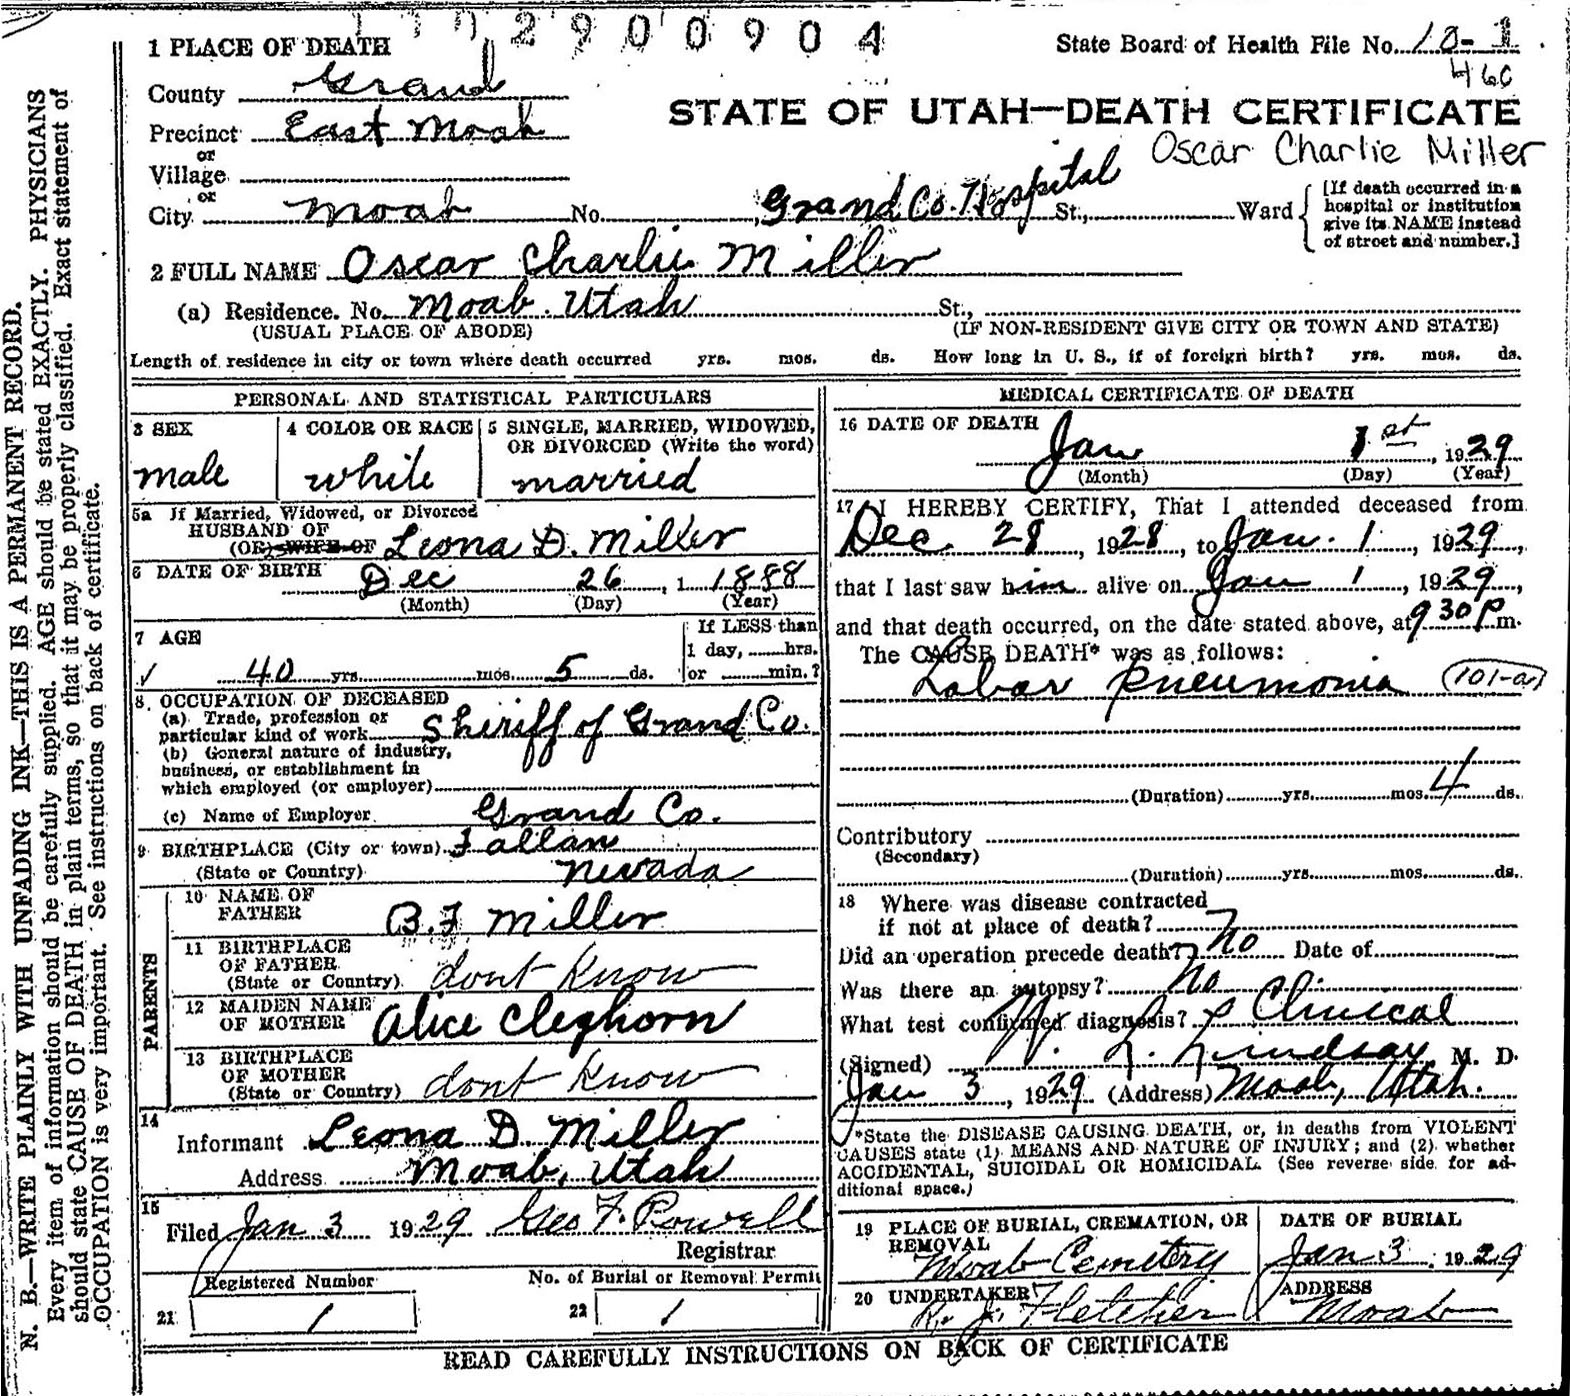 2900904
1 PLACE OF DEATH
State Board of Health File No. 10-1
460
County Grand
STATE OF UTAH—DEATH CERTIFICATE
Precinct East Moab
Oscar Charlie Miller
or
Village
or
City Moab No. Grand Co. Hospital St., Ward
[If death occurred in a
hospital or institution
give its NAME instead
of street and number.]
2 FULL NAME Oscar Charlie Miller
(a) Residence. No. Moab. Utah St.,
(USUAL PLACE OF ABODE) (IF NON-RESIDENT GIVE CITY OR TOWN AND STATE)
Length of residence in city or town where death occurred yrs. mos. ds. How long in U. S., if of foreign birth? yrs. mos. ds.
PERSONAL AND STATISTICAL PARTICULARS
3 SEX
male
4 COLOR OR RACE
white
5 SINGLE, MARRIED, WIDOWED,
OR DIVORCED (Write the word)
married
5a If Married, Widowed, or Divorced
HUSBAND OF
(OR) WIFE OF Leona D. Miller
6 DATE OF BIRTH Dec 26, 1 1888
(Month) (Day) (Year)
7 AGE
40 yrs. mos. 5 ds.
If LESS than
1 day, hrs.
or min.?
8 OCCUPATION OF DECEASED
(a) Trade, profession or
particular kind of work Sheriff of Grand Co.
(b) General nature of industry,
business, or establishment in
which employed (or employer)
(c) Name of Employer Grand Co.
9 BIRTHPLACE (City or town) Fallan
(State or Country) Nevada
PARENTS
10 NAME OF
FATHER B.F Miller
11 BIRTHPLACE
OF FATHER
(State or Country) dont Know
12 MAIDEN NAME
OF MOTHER Alice Cleghorn
13 BIRTHPLACE
OF MOTHER
(State or Country) dont Know
14
Informant Leona D. Miller
Address Moab, Utah
15
Filed Jan 3 1929 Geo F. Powell
Registrar
Registered Number
21 1
No. of Burial or Removal Permit
22 1
MEDICAL CERTIFICATE OF DEATH
16 DATE OF DEATH
Jan 1st, 1929
(Month) (Day) (Year)
17 I HEREBY CERTIFY, That I attended deceased from
Dec. 28, 1928, to Jan. 1, 1929,
that I last saw him alive on Jan 1, 1929,
and that death occurred, on the date stated above, at 9 30 P m.
The CAUSE DEATH* was as follows:
Lobar Pneumonia 101-a
(Duration) yrs. mos. 4 ds.
Contributory
(Secondary)
(Duration) yrs. mos. ds.
18 Where was disease contracted
if not at place of death?
Did an operation precede death? No Date of
Was there an autopsy? No
What test confirmed diagnosis? Clinical
(Signed) W. L. Lindsay, M. D.
Jan 3, 1929 (Address) Moab, Utah.
*State the DISEASE CAUSING DEATH, or, in deaths from VIOLENT
CAUSES state (1) MEANS AND NATURE OF INJURY; and (2) whether
ACCIDENTAL, SUICIDAL OR HOMICIDAL. (See reverse side for ad-
ditional space.)
19 PLACE OF BURIAL, CREMATION, OR
REMOVAL
Moab Cemetry
DATE OF BURIAL
Jan 3, 1929
20 UNDERTAKER
R. J. Fletcher
ADDRESS
Moab
READ CAREFULLY INSTRUCTIONS ON BACK OF CERTIFICATE
N. B.—WRITE PLAINLY WITH UNFADING INK—THIS IS A PERMANENT RECORD.
Every item of information should be carefully supplied. AGE should be stated EXACTLY. PHYSICIANS
should state CAUSE OF DEATH in plain terms, so that it may be properly classified. Exact statement of
OCCUPATION is very important. See instructions on back of certificate.